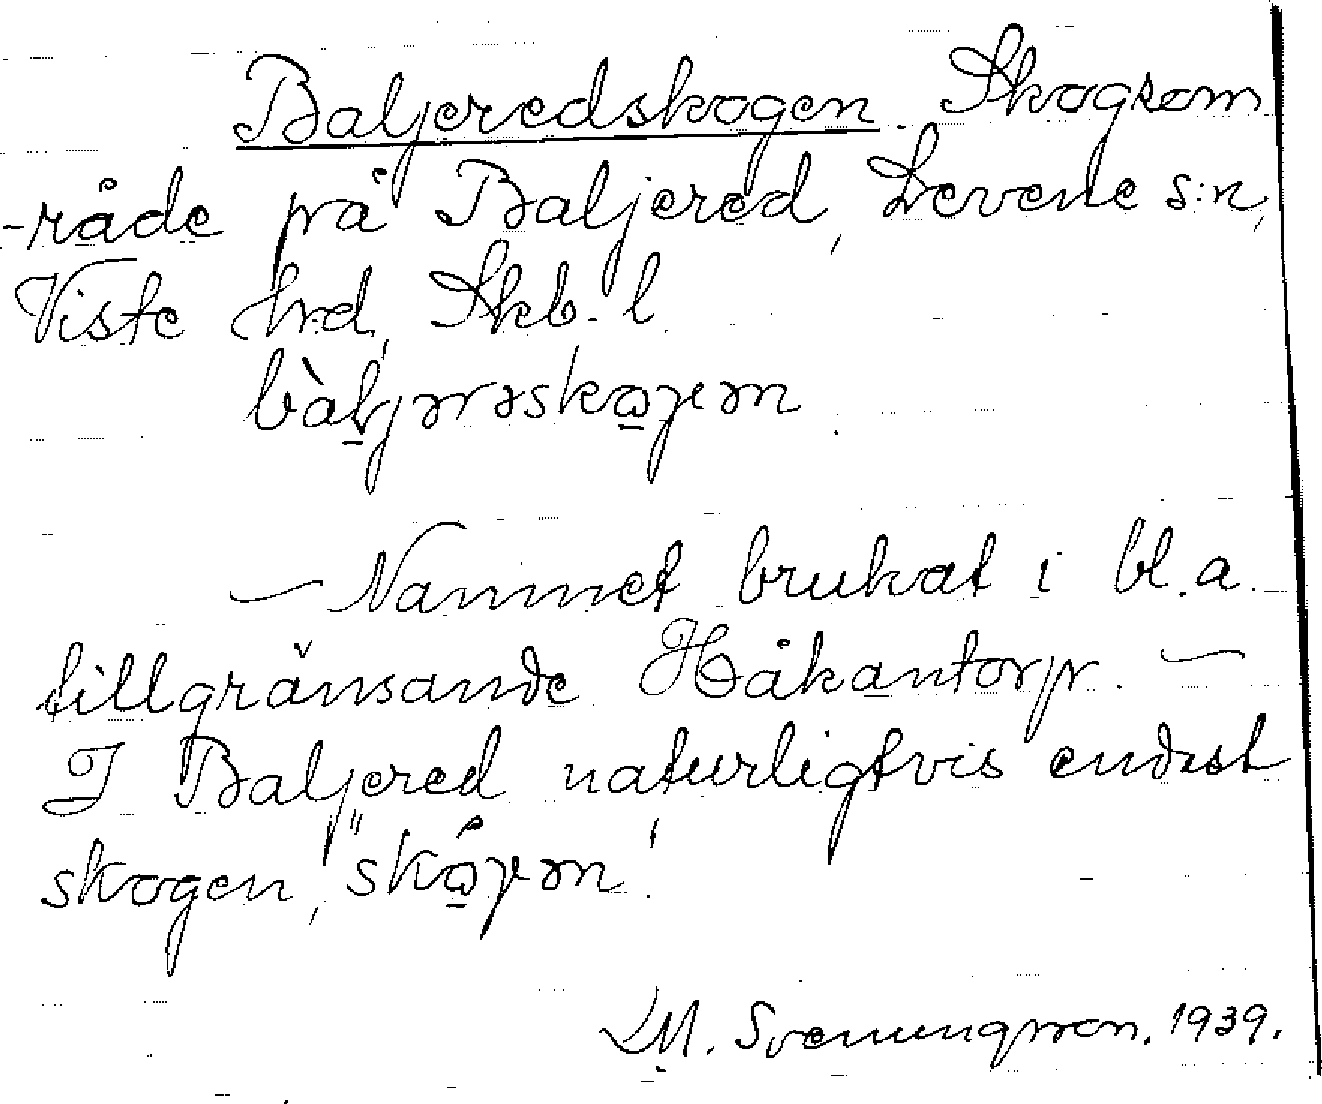 Baljeredskogen. Skogsom
-råde på Baljered, Levene s:n,
Viste hrd, Skb. l.
— Namnet brukat i bl.a.
tillgränsande Håkantorp. —
I Baljered naturligtvis endast
skogen,
M. Svenungsson. 1939.